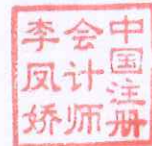 中国注册
会计师
李凤娇